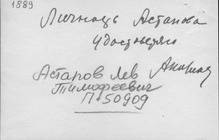 1889
Личность Астапова
удостоверяю
Астапов Лев
Тимофеевич
П-50909